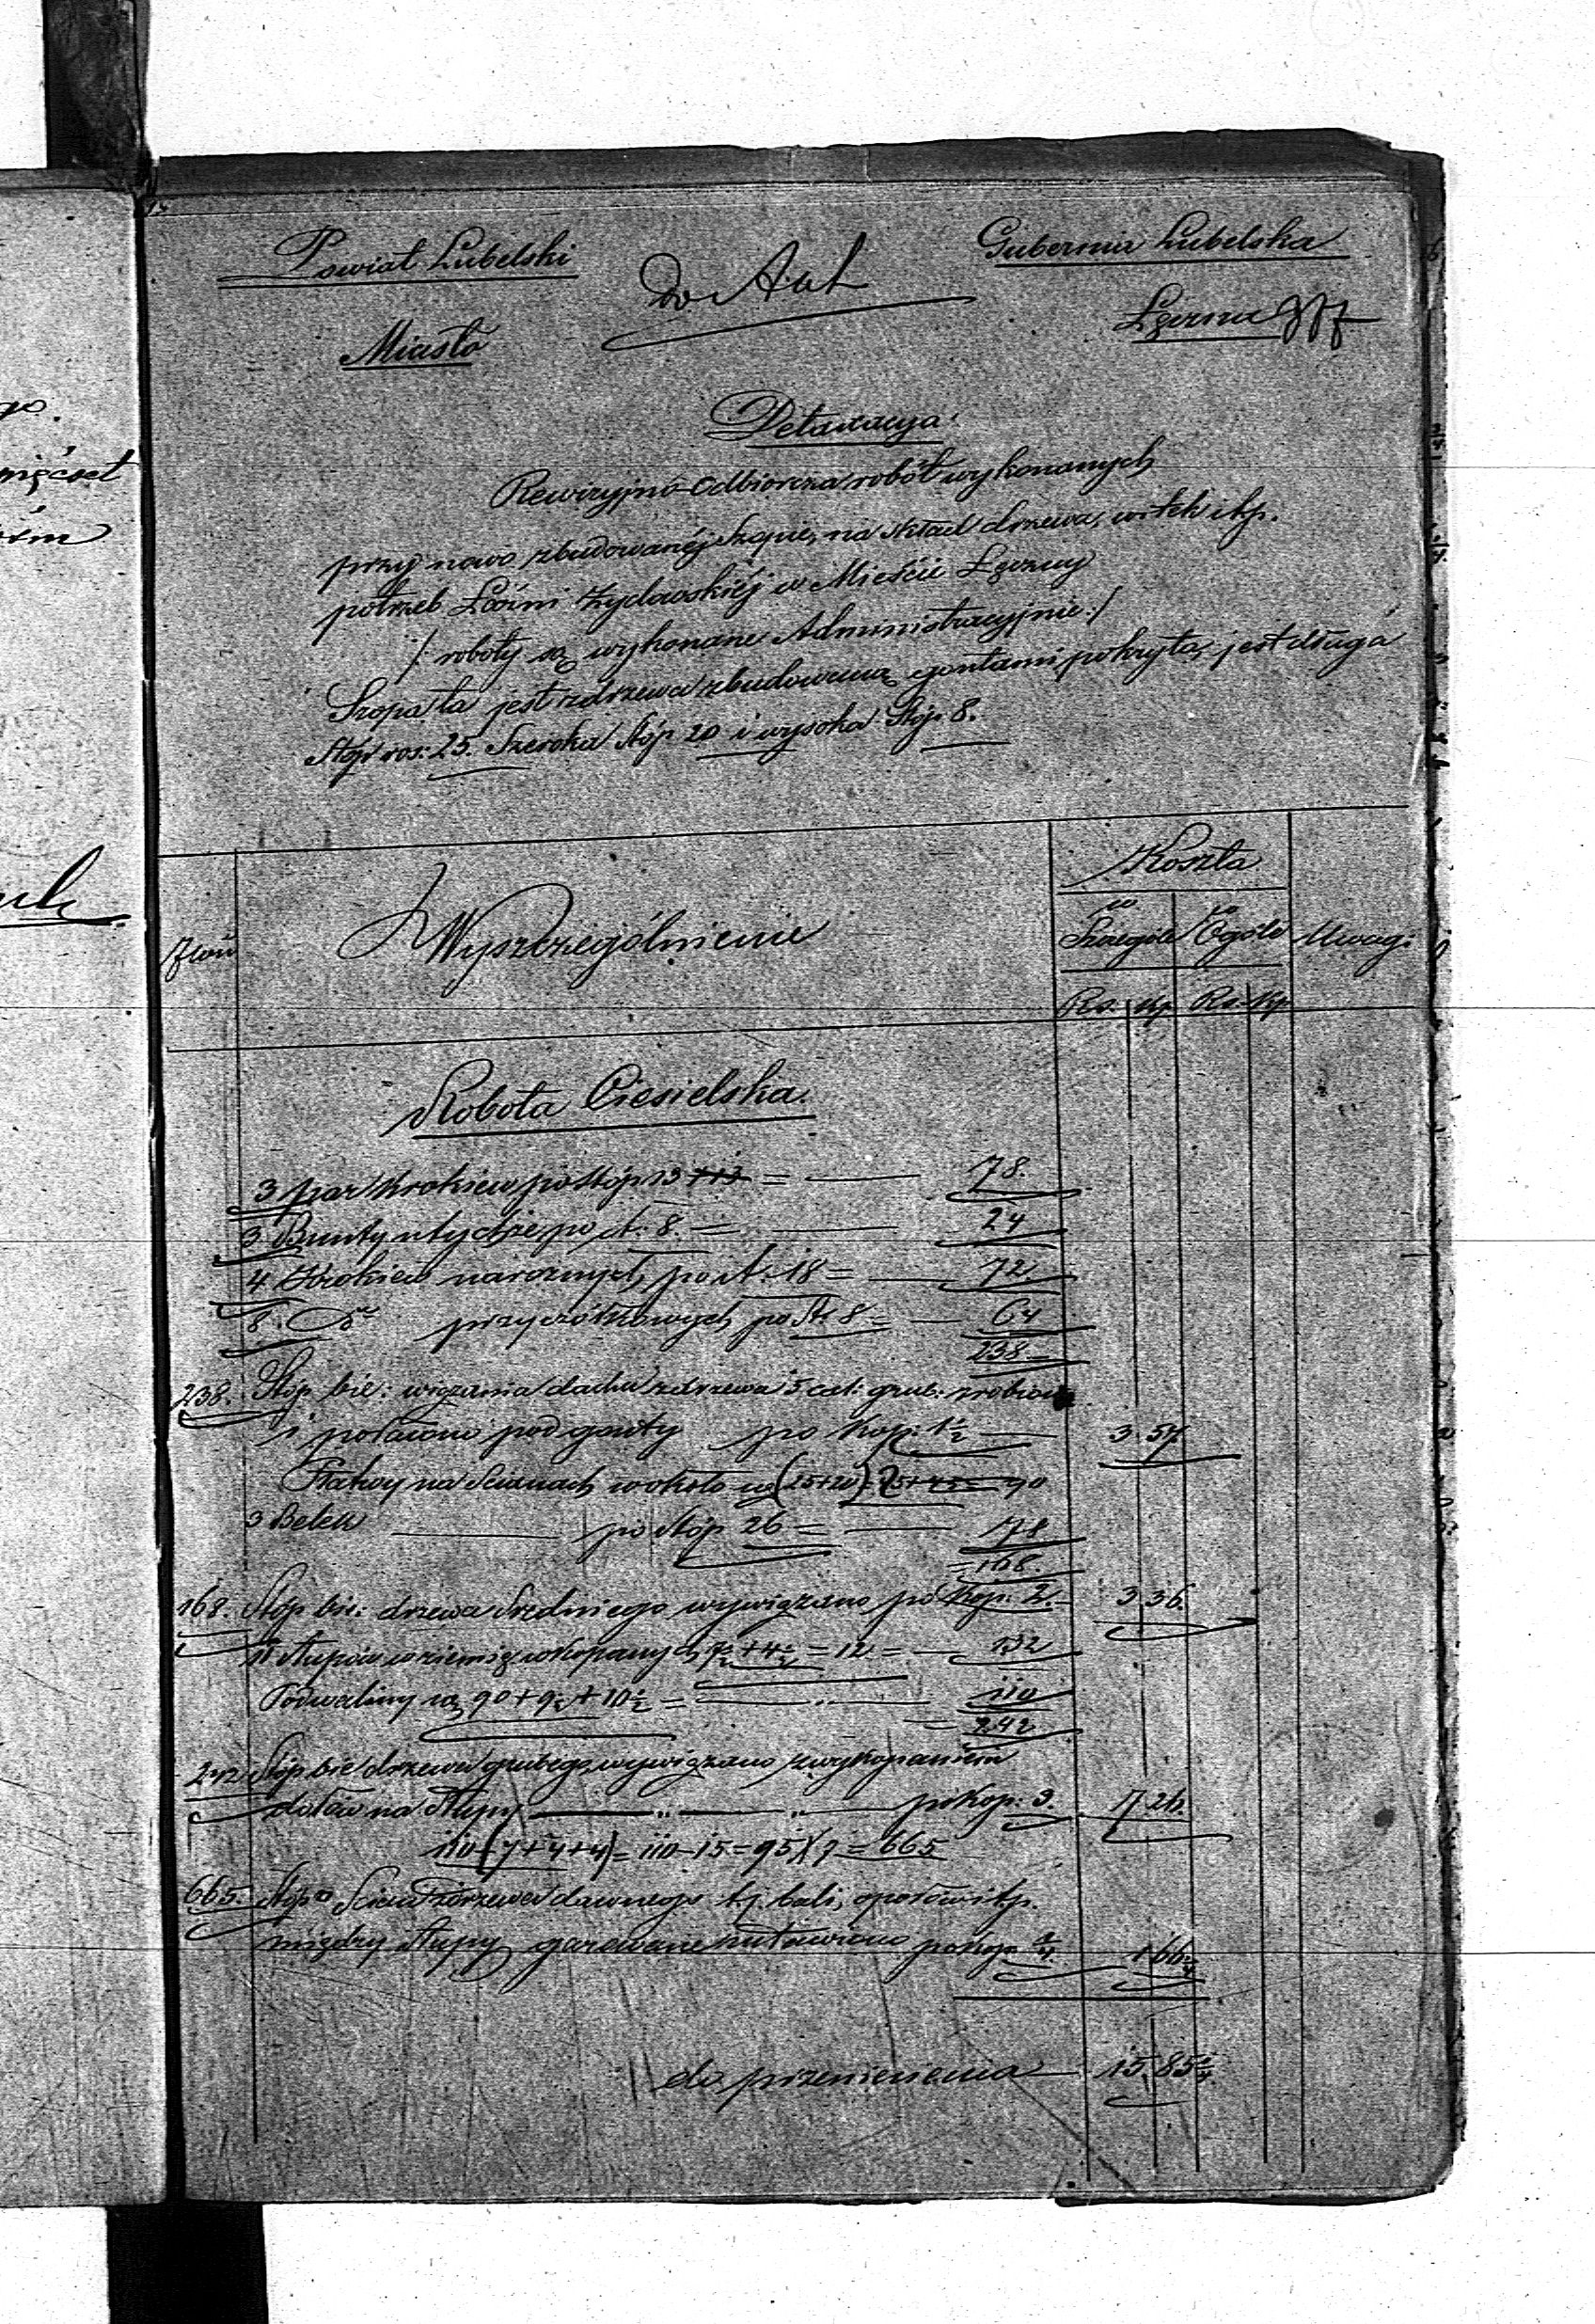 Powiat Lubelski
Gubernia Lubelska
Do Akt
Miasto
Łęczna
Detaxacya
Rewizyjno-Odbiorcza robót wykonanych
przy nowo zbudowanéj Szopie, na skład drzewa, i t.p.
potrzeb Łaźni Żydowskiéj w Mieście Łęczny
/: roboty są wykonane Administracyjnie :/
Szopa ta jest z drzewa zbudowana, gontami pokryta, jest długa
Stóp ros: 25. Szeroka Stóp 20 i wysoka Stóp 8.
Koszta
Wyszczególnienie
w Szczególe
w Ogóle
Uwagi
Rs. Kp. Rs. Kp.
Robota Ciesielska.
3 par Krokiew po Stóp 13 + 13 = 78.
3 Bunty po st. 8. = 24
4 Krokiew narożnych po st. 18 = 72.
8. Do przyczółkowych po St. 8 = 64
238
238. Stóp bie: wiązania dachu z drzewa 5 cal: grub: zrobiono
i pod gonty po Kop: 1½ 3.57.
Płatwy na Scianach w około są (25+20) = 90
3 Belek po Stóp 26 = 78
= 168
168. Stóp bie: drzewa Sredniego wywiązano po Kop: 2. 3.36.
11 Słupów w ziemię wkopanych 7½ + 4½ = 12 = 132
Podwaliny są 90 + 9½ + 10½ = 110
= 242
242 Stóp bie drzewa grubego wywiązano z wykopaniem
dołów na Słupy po Kop: 3. 7.26.
110-(7+4+4) = 110-15 = 95 X 7 = 665
665. Stóp □ Scian z drzewa dawnego t.j. bali, opołów i t.p.
między Słupy po Kop ¼ 1.66¼
do przeniesienia 15.85¼